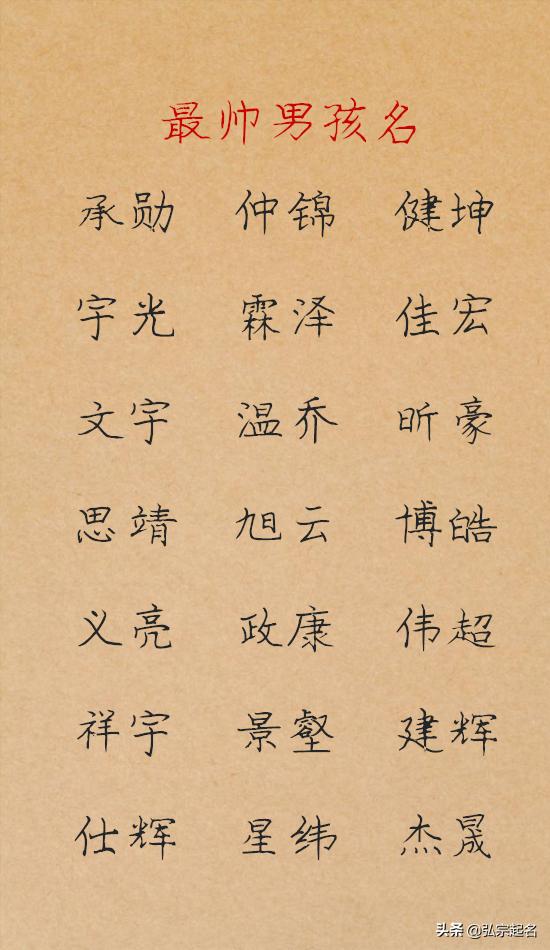 最帅男孩名
承勋 仲锦 健坤
宇光 霖泽 佳宏
文宇 温乔 昕豪
思靖 旭云 博皓
义亮 政康 伟超
祥宇 景壑 建辉
仕辉 星纬 杰晟
头条 @弘宗起名